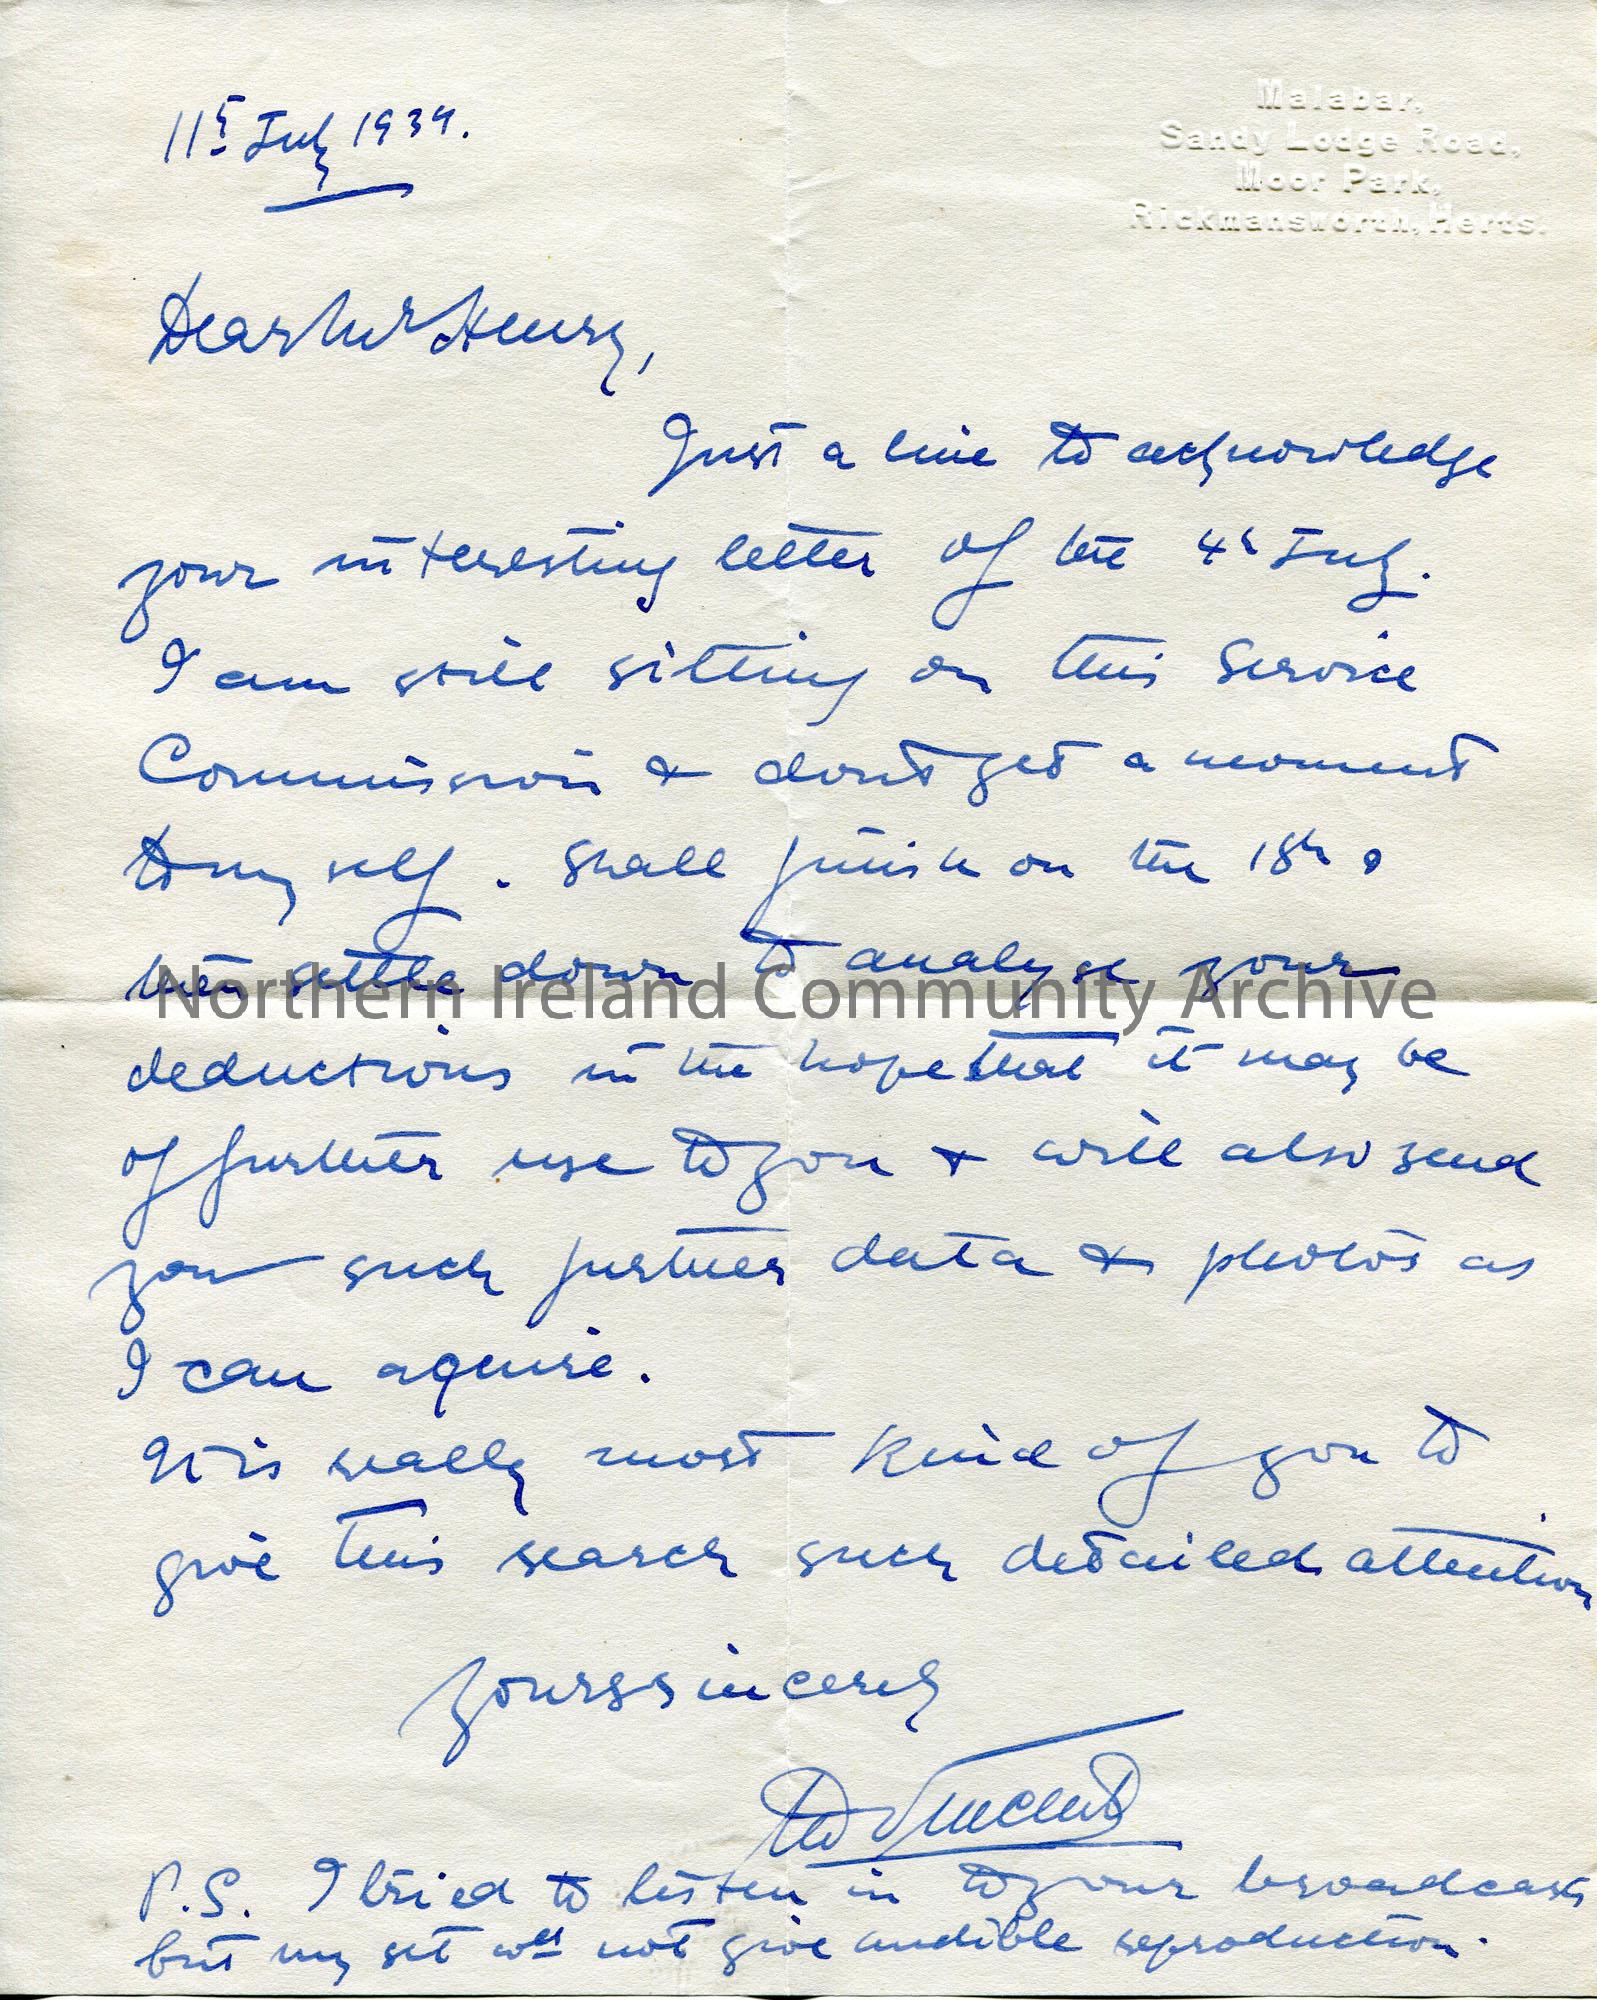 Malabar,
Sandy Lodge Road,
Moor Park,
Rickmansworth, Herts.
11th July 1939.
Dear Mr Henry,
Just a line to acknowledge
your interesting letter of the 4th July.
I am still sitting on this Service
Commission & don't get a moment
to myself. Shall finish on the 18th &
then settle down to analyse your
deductions in the hope that it may be
of further use to you & will also send
you such further data & photos as
I can aquire.
It is really most kind of you to
give this search such detailed attention
Yours sincerely
Vincent
P.S. I tried to listen in to your broadcasts
but my set wd not give audible reproduction.
Northern Ireland Community Archive